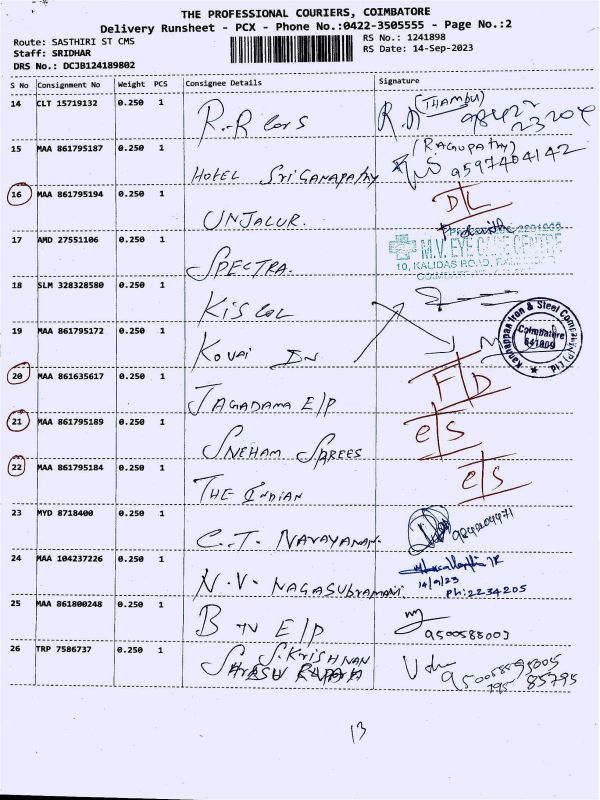 THE PROFESSIONAL COURIERS, COIMBATORE
Delivery Runsheet - PCX - Phone No.:0422-3505555 - Page No.:2
Route: SASTHIRI ST CMS
RS No.: 1241898
Staff: SRIDHAR
RS Date: 14-Sep-2023
DRS No.: DCJB124189802
S No Consignment No Weight PCS Consignee Details Signature
14 CLT 15719132 0.250 1 R.R (THAMBU)
15 MAA 861795187 0.250 1 HOTEL Sri GANAPATHY (RAGUPATHY) 9597404142
16 MAA 861795194 0.250 1 UNJALUR. D/L
17 AMD 27551106 0.250 1 SPECTRA. M.V. EYE CARE CENTRE
10, KALIDAS ROAD,
18 SLM 328328580 0.250 1
19 MAA 861795172 0.250 1 KOVAI Kannappan Iron & Steel Company (P) Ltd Coimbatore 641009
20 MAA 861635617 0.250 1 JAGADAMA E/P F/D
21 MAA 861795189 0.250 1 SNEHAM SAREES e/s
22 MAA 861795184 0.250 1 THE INDIAN e/s
23 MYD 8718400 0.250 1 C.T. NARAYANAN.
24 MAA 104237226 0.250 1 N.V. NAGASUBRAMANI
14/9/23
Ph: 2234205
25 MAA 861800248 0.250 1 B TN E/P
26 TRP 7586737 0.250 1 S.KRISHNAN
85795
13